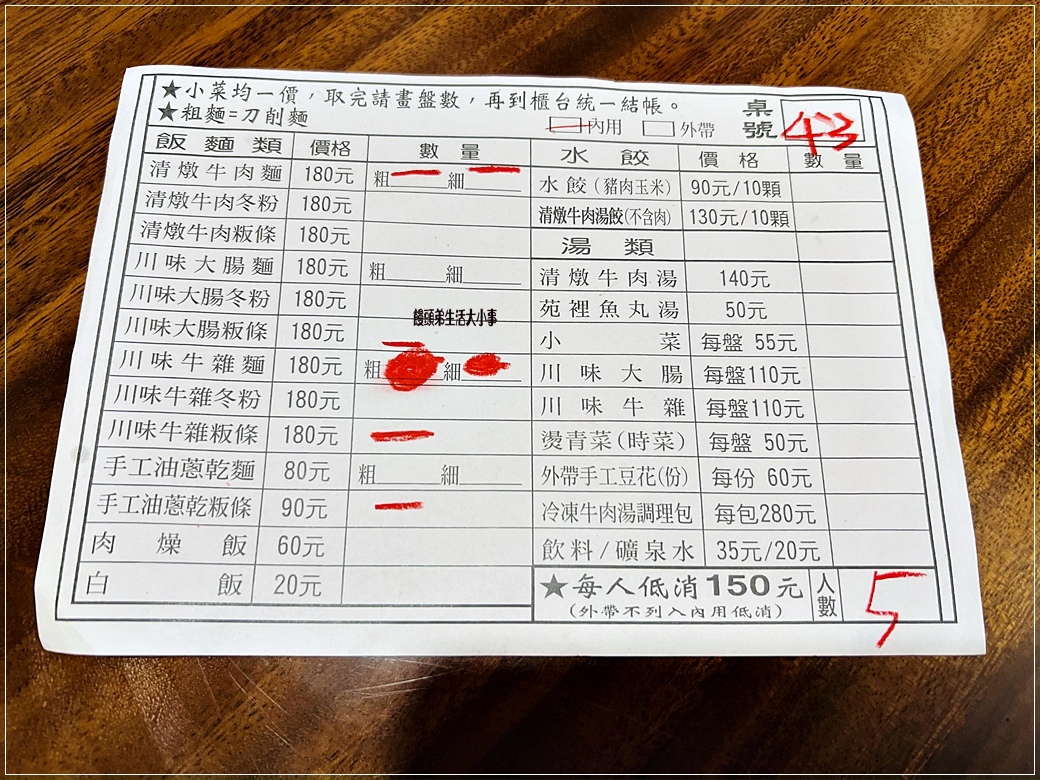 ★小菜均一價，取完請畫盤數，再到櫃台統一結帳。
★粗麵=刀削麵
內用 外帶
桌號 43
飯麵類 價格 數量
清燉牛肉麵 180元 粗 一 細 一
清燉牛肉冬粉 180元
清燉牛肉粄條 180元
川味大腸麵 180元 粗______細______
川味大腸冬粉 180元
川味大腸粄條 180元 一
川味牛雜麵 180元 粗______細______
川味牛雜冬粉 180元
川味牛雜粄條 180元 一
手工油蔥乾麵 80元 粗______細______
手工油蔥乾粄條 90元 一
肉燥飯 60元
白飯 20元
水餃 價格 數量
水餃(豬肉玉米) 90元/10顆
清燉牛肉湯餃(不含肉) 130元/10顆
湯類
清燉牛肉湯 140元
苑裡魚丸湯 50元
小菜 每盤 55元
川味大腸 每盤110元
川味牛雜 每盤110元
燙青菜(時菜) 每盤 50元
外帶手工豆花(份) 每份 60元
冷凍牛肉湯調理包 每包280元
飲料/礦泉水 35元/20元
★每人低消150元
(外帶不列入內用低消)
人數 5
饅頭弟生活大小事